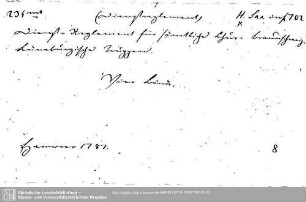 (Dienstreglement) H. Sax. inf. 702
Dienst-Reglement für sämtliche Chur-braunschweig.
Lüneburgische Truppen.
Vier Bände.
Hannover 1787. 8
Sächsische Landesbibliothek -
Staats- und Universitätsbibliothek Dresden